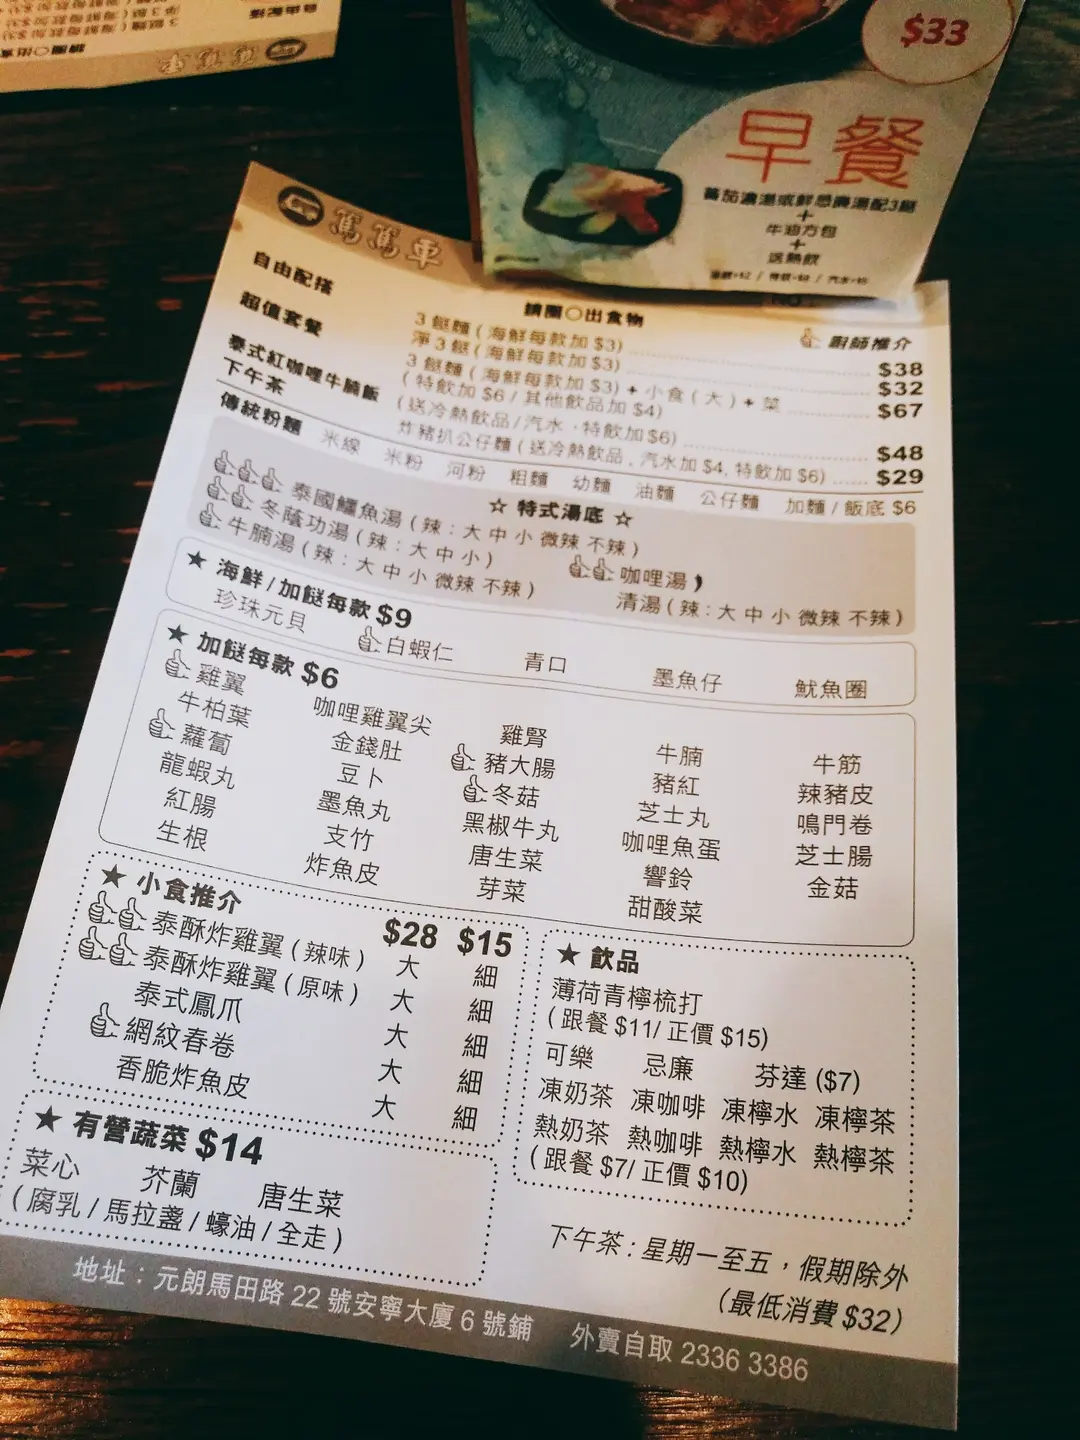 $33
早餐
蕃茄濃湯或鮮忌廉湯配3餸
+
牛油方包
+
送熱飲
篤篤車
請圈○出食物
廚師推介
自由配搭
3 餸麵 ( 海鮮每款加 $3) $38
淨 3 餸 ( 海鮮每款加 $3) $32
超值套餐 3 餸麵 ( 海鮮每款加 $3) + 小食 ( 大 ) + 菜 $67
( 特飲加 $6 / 其他飲品加 $4)
泰式紅咖哩牛腩飯 ( 送冷熱飲品 / 汽水 , 特飲加 $6) $48
下午茶 炸豬扒公仔麵 ( 送冷熱飲品 , 汽水加 $4, 特飲加 $6) $29
傳統粉麵 米線 米粉 河粉 粗麵 幼麵 油麵 公仔麵 加麵 / 飯底 $6
☆ 特式湯底 ☆
泰國鱷魚湯 ( 辣 : 大 中 小 微辣 不辣 )
冬蔭功湯 ( 辣 : 大 中 小 ) 咖哩湯
牛腩湯 ( 辣 : 大 中 小 微辣 不辣 ) 清湯 ( 辣 : 大 中 小 微辣 不辣 )
★ 海鮮 / 加餸每款 $9
珍珠元貝 白蝦仁 青口 墨魚仔 魷魚圈
★ 加餸每款 $6
雞翼 咖哩雞翼尖 雞腎 牛腩 牛筋
牛柏葉 金錢肚 豬大腸 豬紅 辣豬皮
蘿蔔 豆卜 冬菇 芝士丸 鳴門卷
龍蝦丸 墨魚丸 黑椒牛丸 咖哩魚蛋 芝士腸
紅腸 支竹 唐生菜 響鈴 金菇
生根 炸魚皮 芽菜 甜酸菜
★ 小食推介 $28 $15
泰酥炸雞翼 ( 辣味 ) 大 細
泰酥炸雞翼 ( 原味 ) 大 細
泰式鳳爪 大 細
網紋春卷 大 細
香脆炸魚皮 大 細
★ 有營蔬菜 $14
菜心 芥蘭 唐生菜
( 腐乳 / 馬拉盞 / 蠔油 / 全走 )
★ 飲品
薄荷青檸梳打
( 跟餐 $11/ 正價 $15)
可樂 忌廉 芬達 ($7)
凍奶茶 凍咖啡 凍檸水 凍檸茶
熱奶茶 熱咖啡 熱檸水 熱檸茶
( 跟餐 $7/ 正價 $10)
下午茶 : 星期一至五，假期除外
(最低消費 $32)
地址 : 元朗馬田路 22 號安寧大廈 6 號鋪 外賣自取 2336 3386